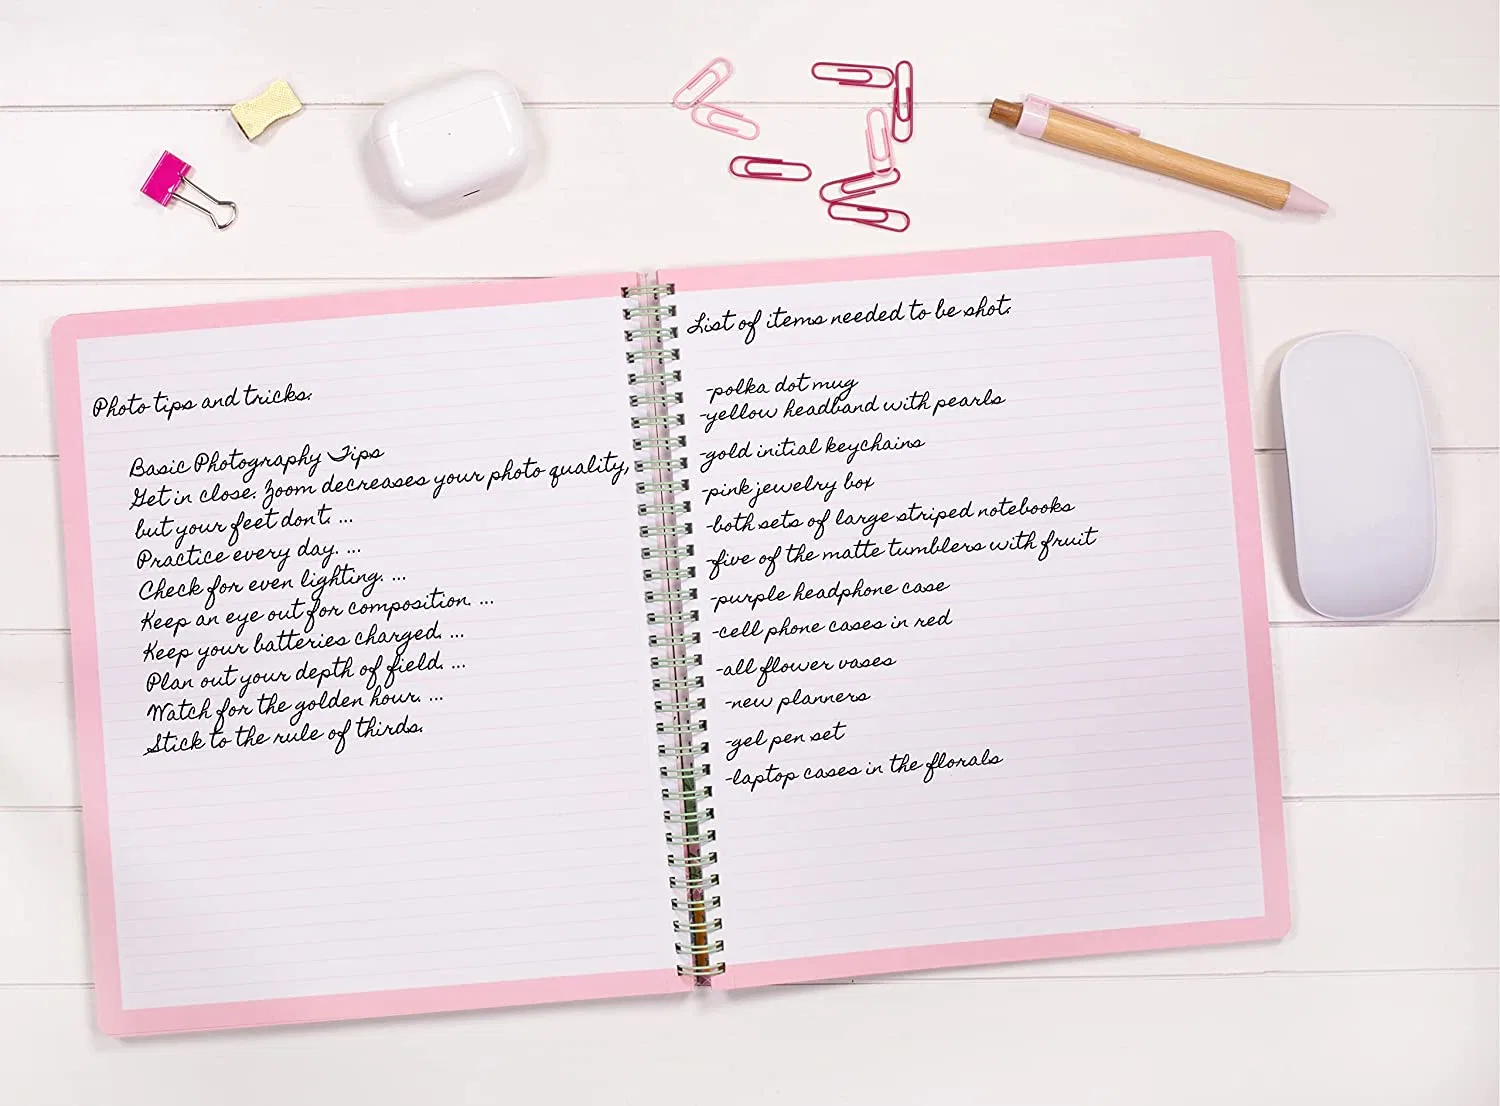 Photo tips and tricks:
Basic Photography Tips
Get in close. Zoom decreases your photo quality,
but your feet don't. ...
Practice every day. ...
Check for even lighting. ...
Keep an eye out for composition. ...
Keep your batteries charged. ...
Plan out your depth of field. ...
Watch for the golden hour. ...
Stick to the rule of thirds.
List of items needed to be shot:
-polka dot mug
-yellow headband with pearls
-gold initial keychains
-pink jewelry box
-both sets of large striped notebooks
-five of the matte tumblers with fruit
-purple headphone case
-cell phone cases in red
-all flower vases
-new planners
-gel pen set
-laptop cases in the florals